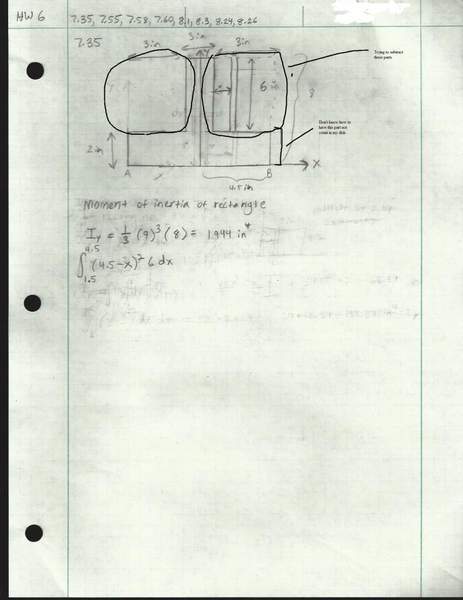 HW 6
7.35, 7.55, 7.58, 7.60, 8.1, 8.3, 8.24, 8.26
7.35
3in
3in
3in
Y
Trying to subtract
these parts
6 in
8
Don't know how to
have this part not
count in my disk
2in
A
B
X
4.5in
Moment of inertia of rectangle
I_y = 1/3 (9)^3 (8) = 1,944 in^4
∫_{1.5}^{4.5} (4.5-x)^2 6 dx